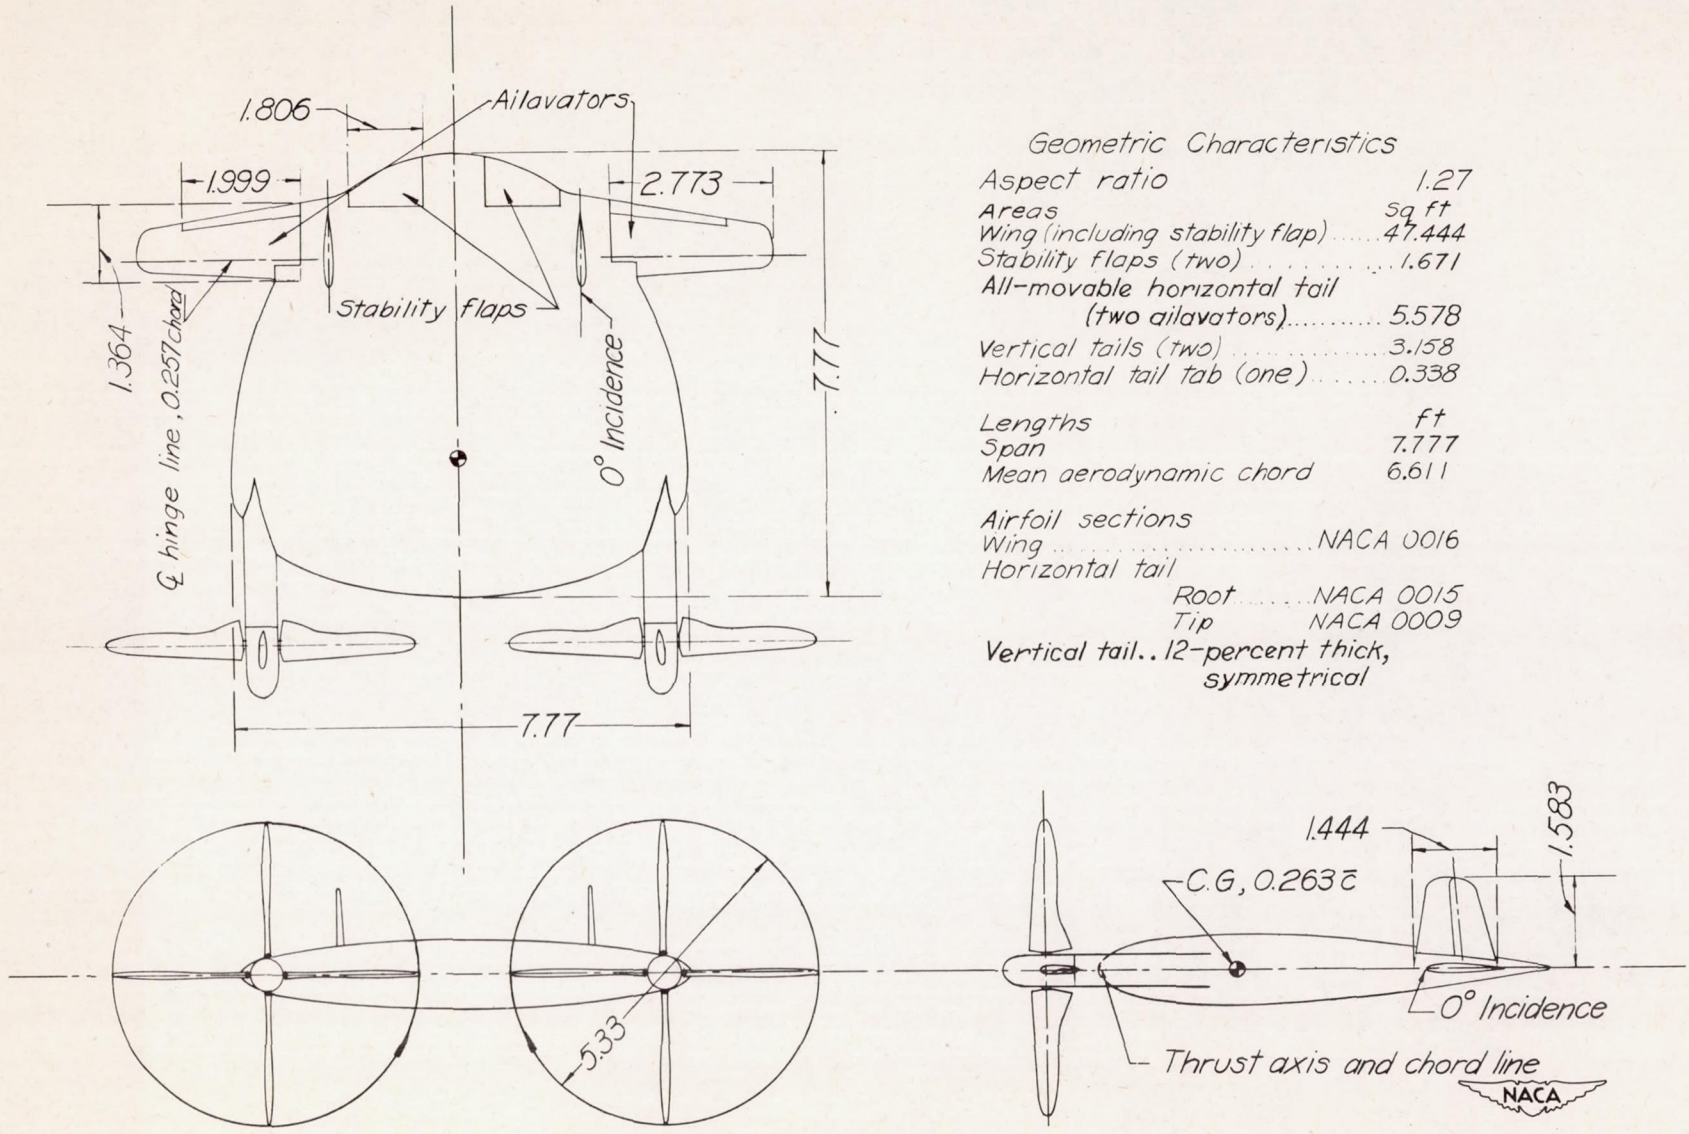 1.806
Ailavators
1.999
2.773
1.364
℄ hinge line, 0.257 chord
Stability flaps
0° Incidence
7.77
7.77
Geometric Characteristics
Aspect ratio 1.27
Areas sq ft
Wing (including stability flap) ..... 47.444
Stability flaps (two) .......... 1.671
All-movable horizontal tail
(two ailavators) .......... 5.578
Vertical tails (two) .............. 3.158
Horizontal tail tab (one) ....... 0.338
Lengths ft
Span 7.777
Mean aerodynamic chord 6.611
Airfoil sections
Wing ...................... NACA 0016
Horizontal tail
Root ........ NACA 0015
Tip NACA 0009
Vertical tail.. 12-percent thick,
symmetrical
5.33
1.444
1.583
C.G., 0.263 c̄
0° Incidence
Thrust axis and chord line
NACA